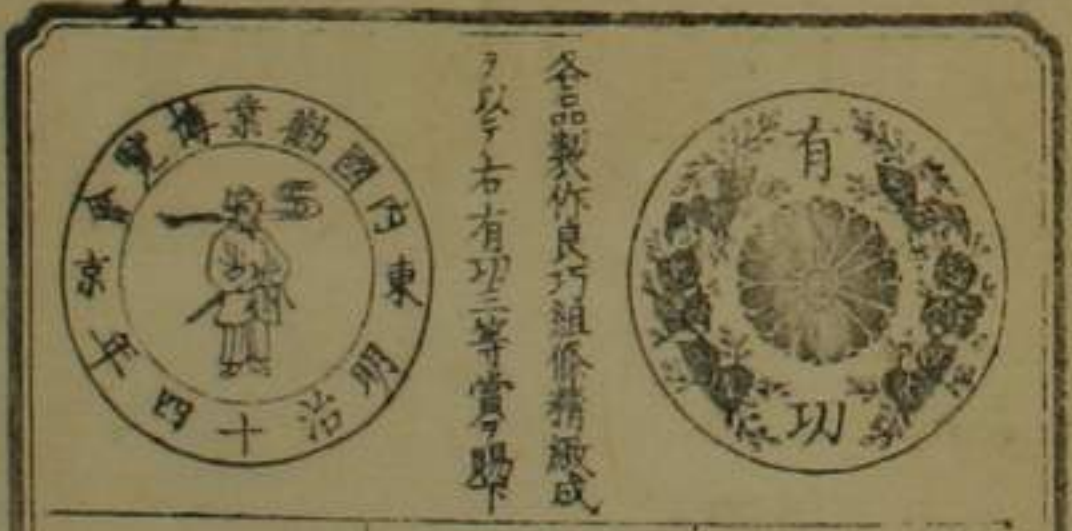 有功
各品製作良巧組修精緻成
ヲ以テ右有功二等賞ヲ賜下
內國勸業博覽會
東京
明治十四年